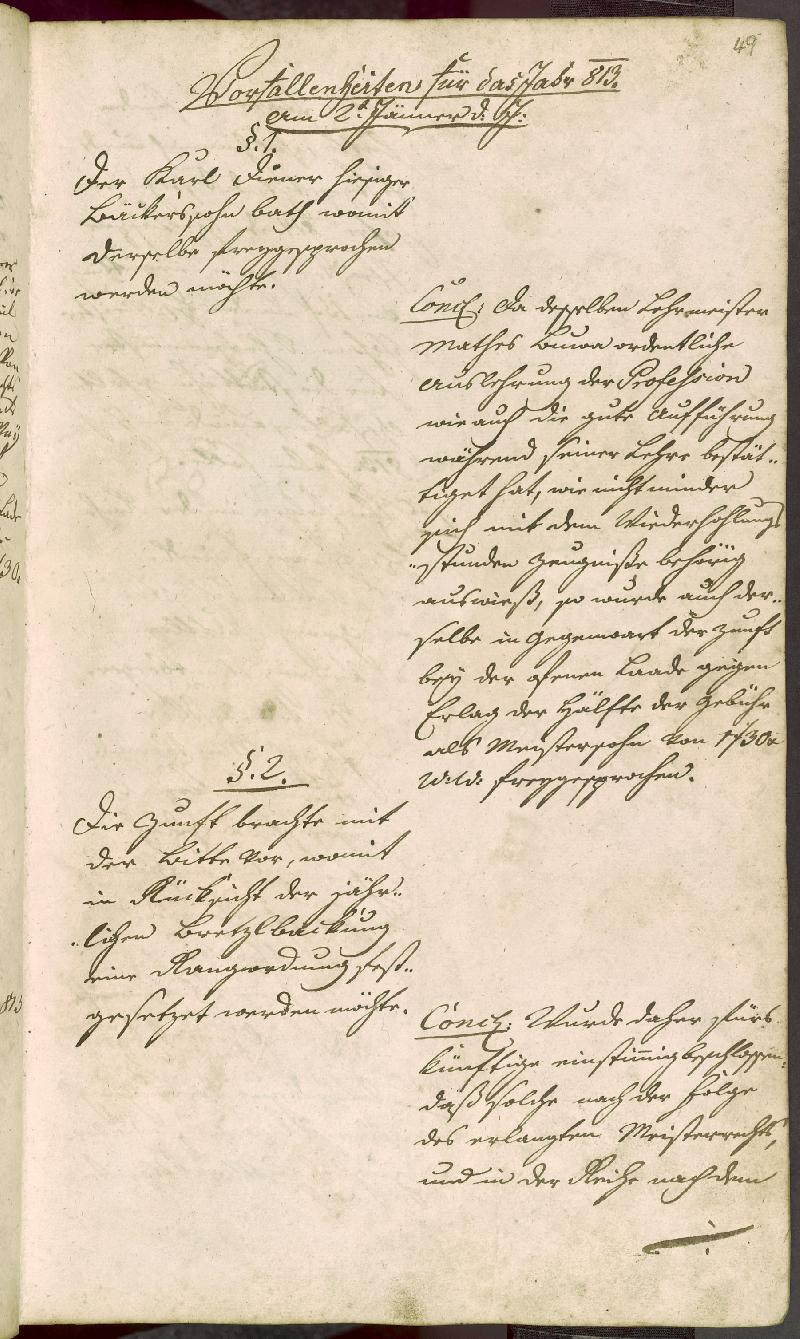 49
Vorfallenheiten für das Jahr 813.
am 2t Jänner d: J:
§. 1.
Der Karl Diener hiesiger
Bäckerssohn bath womit
derselbe freygesprochen
werden möchte.
Concl: Da desselben Lehrmeister
Mathes ordentliche
Auslehrung der Profession
wie auch die gute Aufführung
während seiner Lehre bestät„
tiget hat, wie nicht minder
sich mit dem Wiederhohlungs
„stunden Zeugniße behörig
auswieß, so wurde auch der„
selbe in Gegenwart der Zunft
bey der ofenen Laade gegen
Erlag der Hälfte der Gebühr
als Meistersohn von 1f 30x
W:W: freygesprochen.
§. 2.
Die Zunft brachte mit
der Bitte vor, womit
in Rücksicht der jähr„
„lichen Bretzlbackung
eine Rangordnung fest„
gesetzet werden möchte.
Concl: Wurde daher fürs
künftige einstimig beschlossen,
daß solche nach der Folge
des erlangten Meisterrechts,
und in der Reihe nach dem